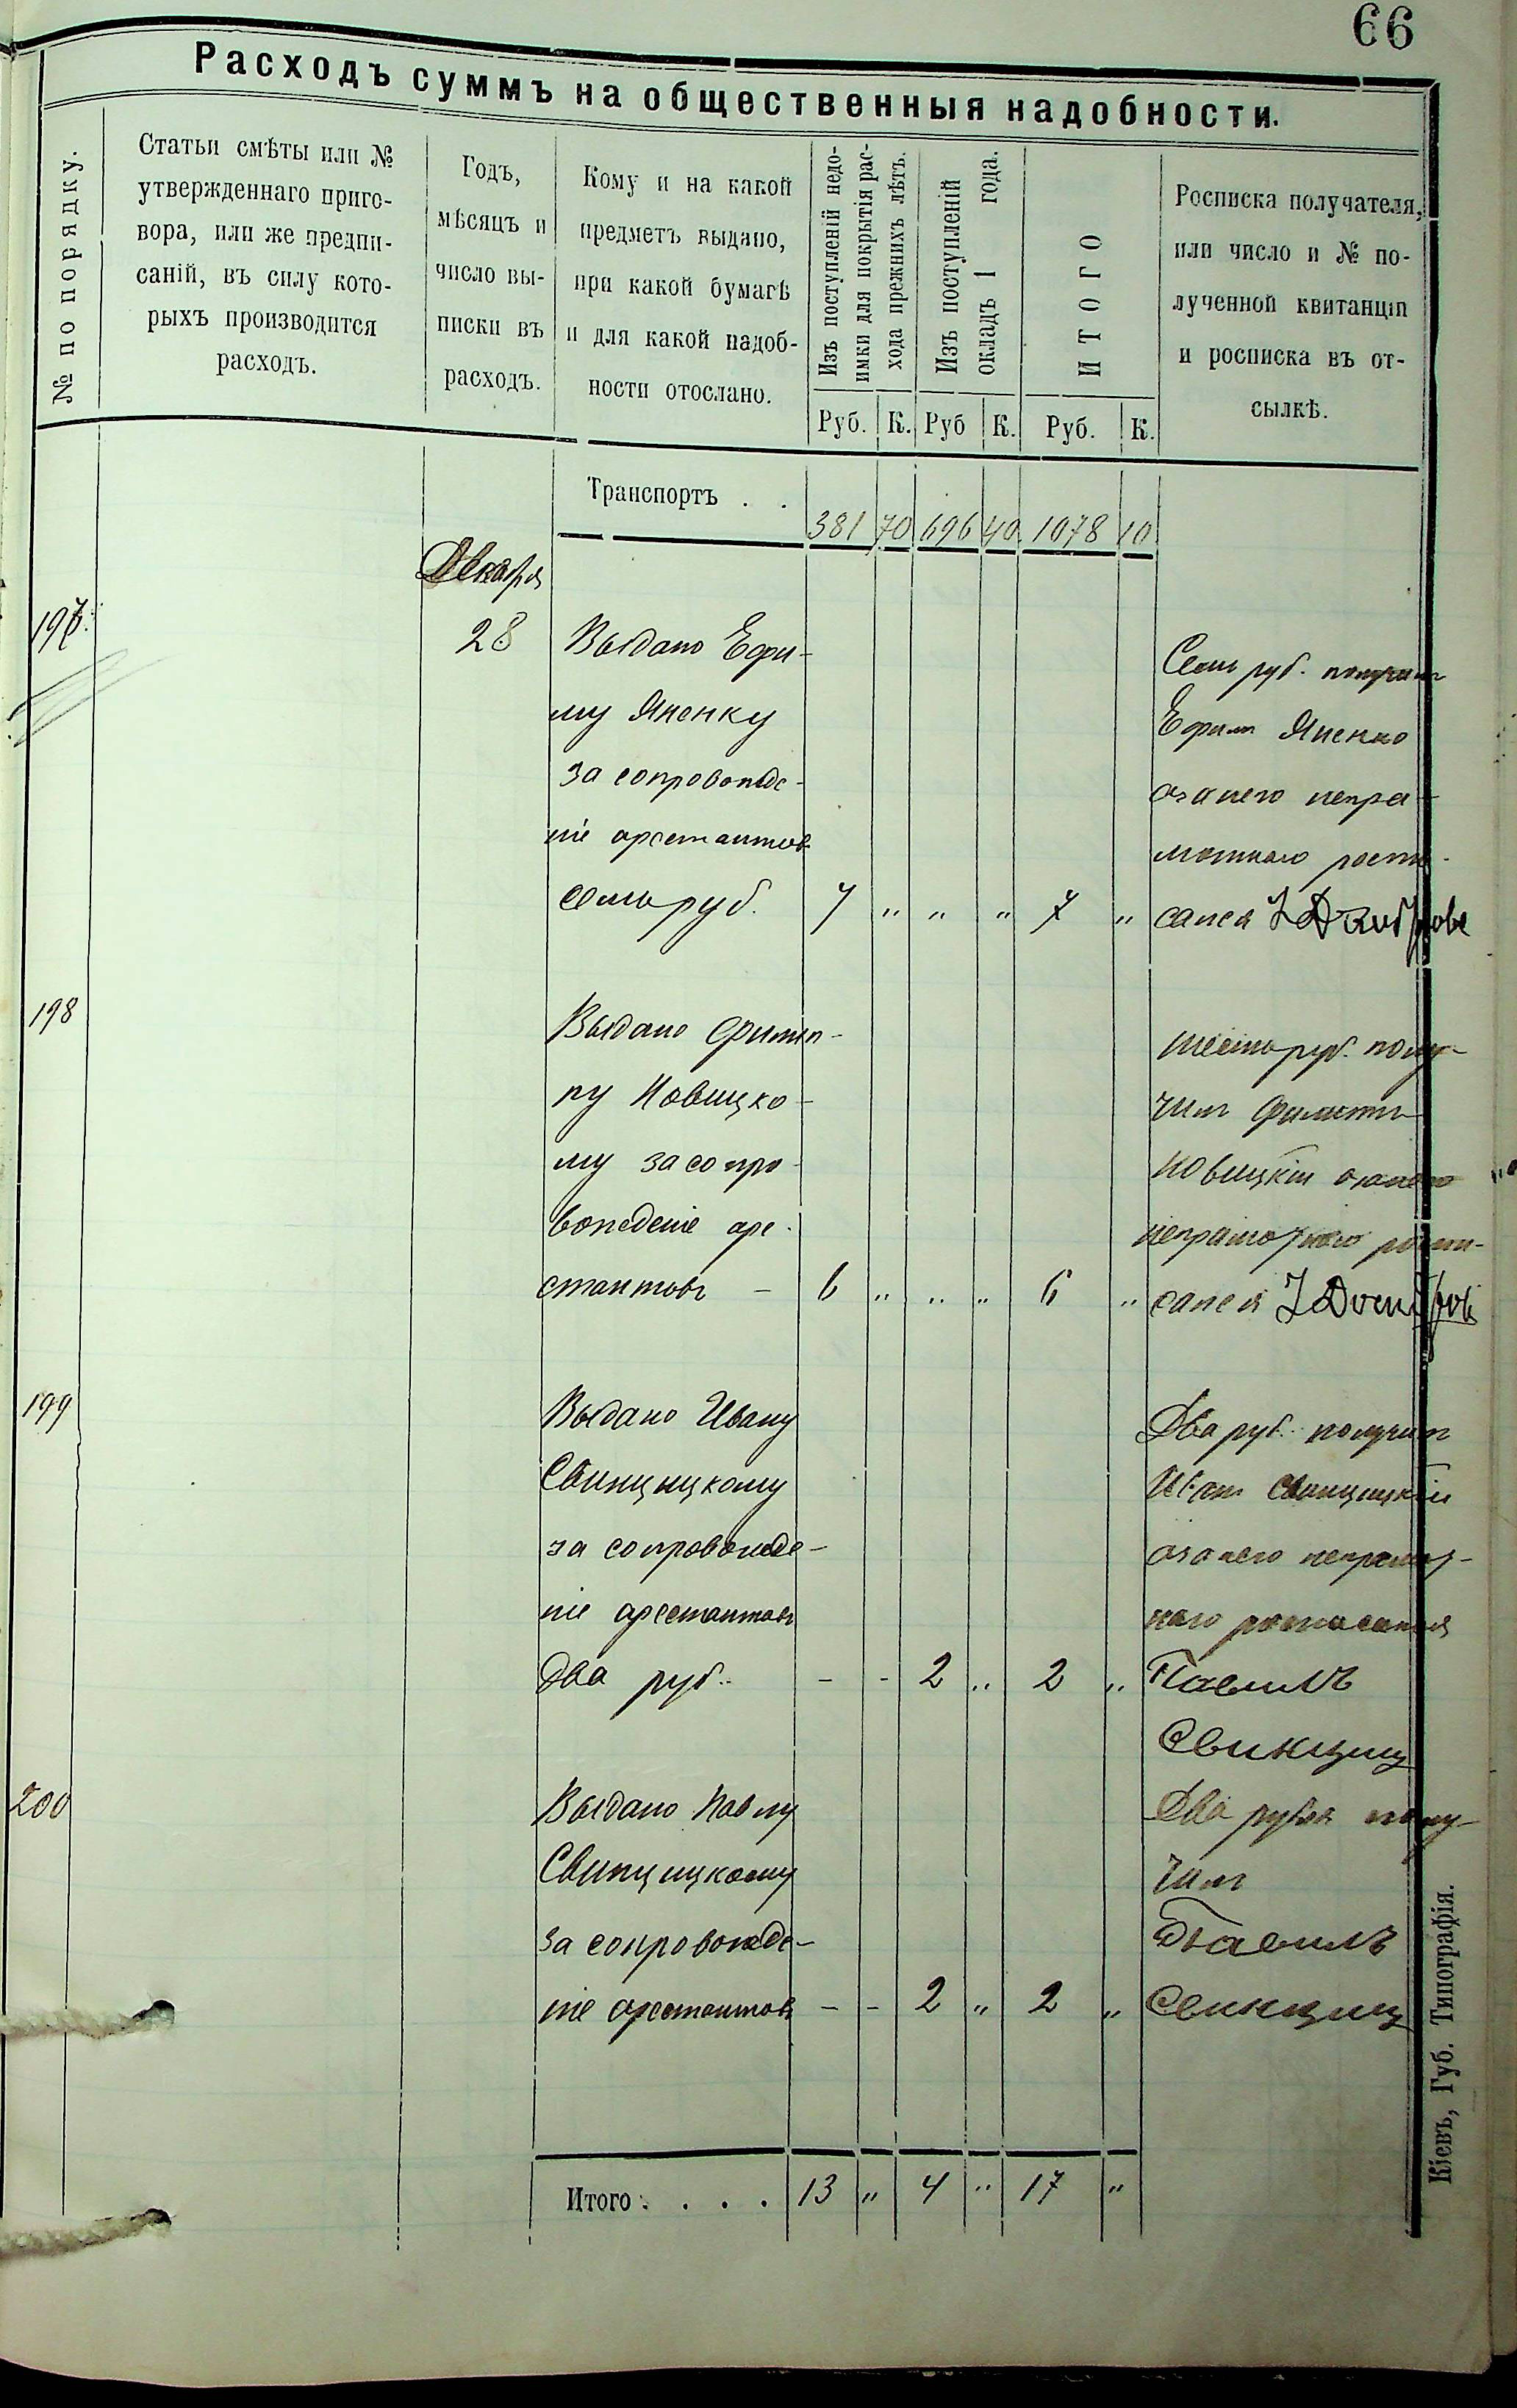 66
Расходъ суммъ на общественныя надобности.
№ по порядку.
Статьи смѣты или №
утвержденнаго приго-
вора, или же предпи-
саній, въ силу кото-
рыхъ производится
расходъ.
Годъ,
мѣсяцъ и
число вы-
писки въ
расходъ.
Кому и на какой
предметъ выдано,
при какой бумагѣ
и для какой надоб-
ности отослано.
Изъ поступленій недо-
имки для покрытія рас-
хода прежнихъ лѣтъ.
Изъ поступленій
окладъ 1 года.
ИТОГО
Росписка получателя,
или число и № по-
лученной квитанціи
и росписка въ от-
сылкѣ.
Руб. К. Руб К. Руб. К.
Транспортъ . . 381 70 696 40 1078 10
Декабря
197. 28 Выдано Ефи-
му Яненку
за сопровожде-
ніе арестантовъ
семь руб. 7 „ „ „ 7 „
Семь руб. получилъ
Ефим Яненко
а за него негра-
мотнаго роспи-
сался
198 Выдано Филип-
пу Новицко-
му за сопро-
вожденіе аре-
стантовъ - 6 „ „ „ 6 „
шесть руб. полу-
чилъ Филиппъ
Новицкій а за него
неграмотнаго роспи-
сался
199 Выдано Ивану
Свинцицкому
за сопровожде-
ніе арестантовъ
два руб. - - 2 „ 2 „
Два руб. получилъ
Иванъ Свинцицкій
а за него неграмот-
наго росписался
Павилъ
Свинциц
200 Выдано Павлу
Свинцицкому
за сопровожде-
ніе арестантовъ - - 2 „ 2 „
Два рубля полу-
чилъ
Павилъ
Свинциц
Итого . . . . 13 „ 4 „ 17 „
Кіевъ, Губ. Типографія.